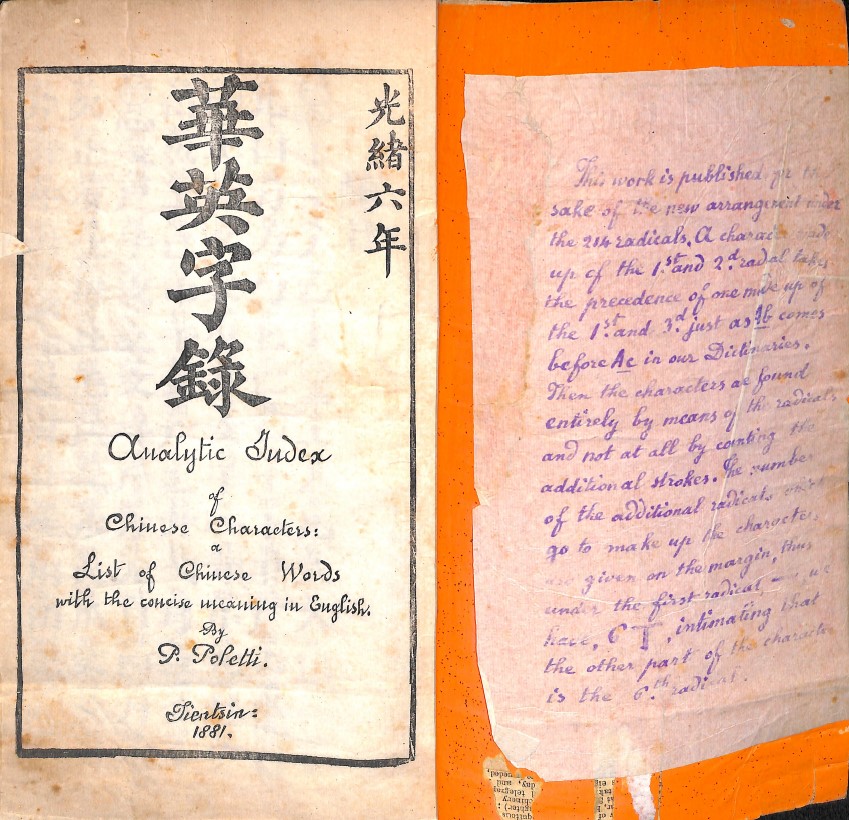 光緒六年
華英字錄
Analytic Index
of
Chinese Characters:
a
List of Chinese Words
with the concise meaning in English.
By
P. Poletti.
Tientsin:
1881.
This work is published
sake of the new arrangement under
the 214 radicals. A charac made
up of the 1.st and 2.d radal takes
the precedence of one made up of
the 1.st and 3.d just as Ab comes
before Ac in our Dictinaries.
Then the characters are found
entirely by means of the radicals
and not at all by counting the
additional strokes. The number
of the additional radicals which
go to make up the character
are given on the margin, thus
under the first radical 一, we
have, 6 丁, intimating that
the other part of the character
is the 6.th radical.